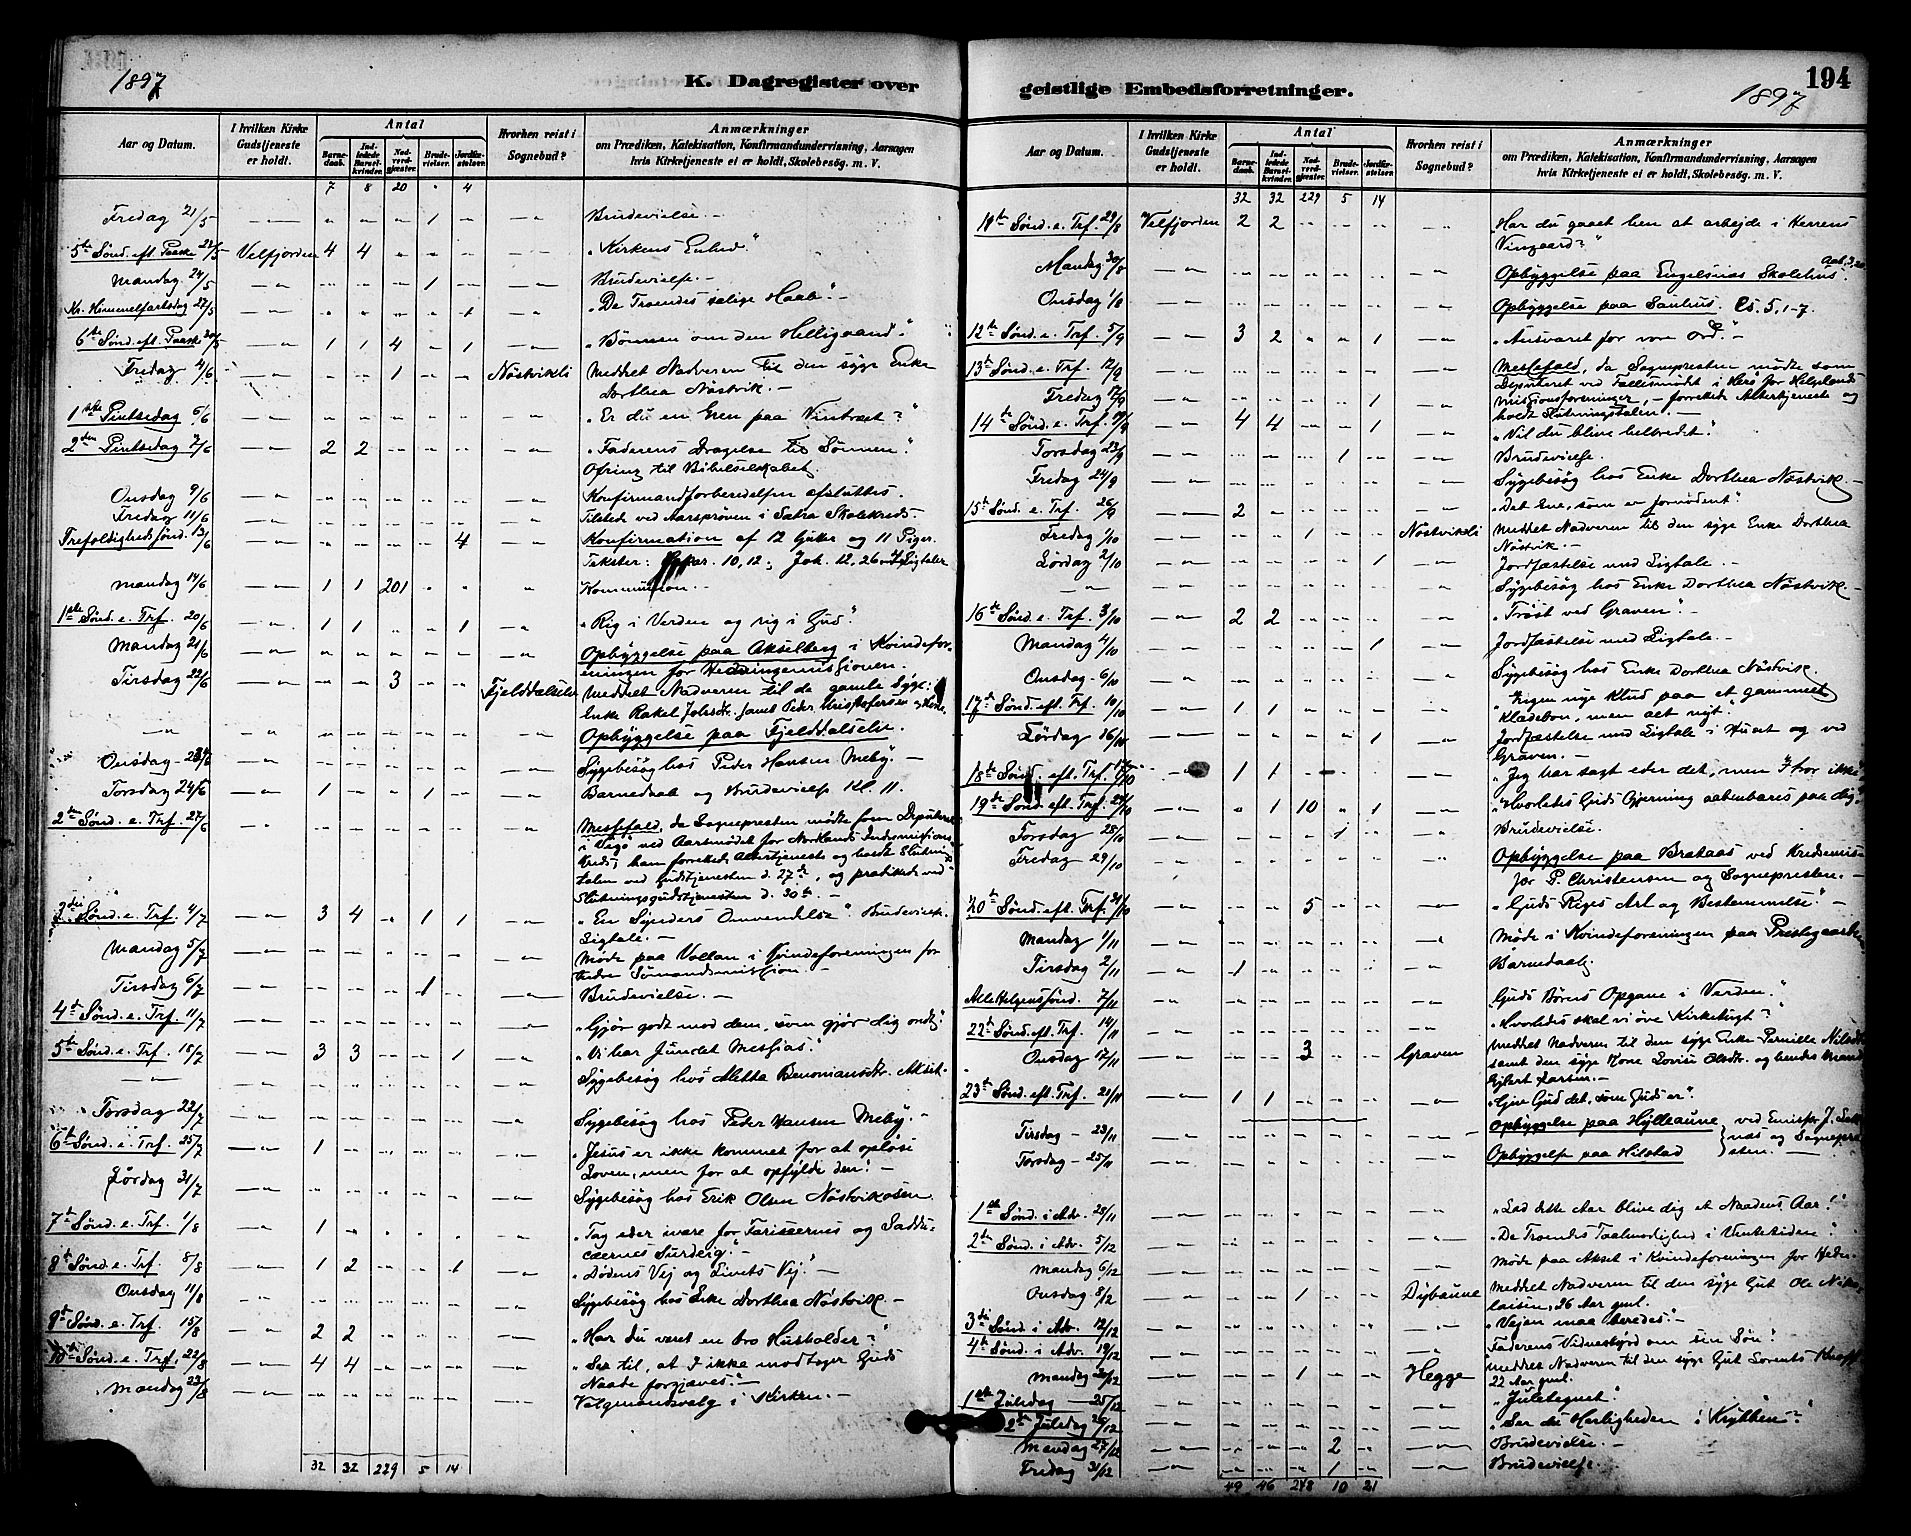 1897
K. Dagregister over
Aar og Datum.
I hvilken Kirke Gudstjeneste er holdt.
Antal
Barnedaab.
Indledede Barselkvinder.
Nadverdgjæster.
Brudevielser.
Jordfæstelser.
Hvorhen reist i Sognebud?
Anmærkninger
om Prædiken, Katekisation, Konfirmandundervisning, Aarsagen
hvis Kirketjeneste ei er holdt, Skolebesøg m. V.
7 8 20 " 4
Fredag 21/5 1 Brudevielse.
5te Sønd. eft. Paaske 23/5 Velfjorden 4 4 "Kirkens Enhed."
Mandag 24/5 1 Brudevielse.
Kr. Himmelfartsdag 27/5 1 "De Troendes salige Haab."
6te Sønd. eft. Paaske 30/5 1 1 4 1 "Bønnen om den Helligaand."
Fredag 4/6 1 Nøstvikli Meddelt Nadveren til den syge Enke
Dorthea Nøstvik.
1ste Pintsedag 6/6 "Er du en Gren paa Vintræet?"
2den Pintsedag 7/6 2 2 "Faderens Dragelse til Sønnen."
Ofring til Bibelselskabet.
Onsdag 9/6 Konfirmandforberedelsen afsluttes.
Fredag 11/6 Tilstede ved Aarsprøven i Sætra Skolekreds.
Trefoldighedssønd. 13/6 4 Konfirmation af 12 Gutter og 11 Piger.
Tekster: 10,12; Joh. 12,26 Ligtaler
Mandag 14/6 1 1 201 Kommunion.
1ste Sønd. e. Trf. 20/6 1 1 1 "Rig i Verden og rig i Gud."
Mandag 21/6 Opbyggelse paa Akselberg i Kvindefor-
eningen for Hedningemissionen.
Tirsdag 22/6 3 Fjelddalselie Meddelt Nadveren til de gamle Syge:
Enke Rakel samt Peder Kristoffersen og Kone.
Opbyggelse paa Fjelddalselie.
Onsdag 23/6 Sygebesøg hos Peder Hansen Meby.
Torsdag 24/6 1 1 Barnedaab og Brudevielse Kl. 11.
2den Sønd. e. Trf. 27/6 Messefald, da Sognepresten mødte som Deputeret
i Vegø ved Aarsmødet for Nordlands Indremissions
Kreds; han forrettede Altertjeneste og holdt Slutnings-
talen ved Gudstjenesten d. 27de, og prædikede ved
Slutningsgudstjenesten d. 30te.
3die Sønd. e. Trf. 4/7 3 4 1 1 "En Synders Omvendelse". Brudevielse.
Ligtale.
Mandag 5/7 Møde paa Vollan i Kvindeforeningen for
indre Sømandsmission
Tirsdag 6/7 1 Brudevielse.
4de Sønd. e. Trf. 11/7 "Gjør godt mod dem, som gjør dig ondt."
5te Sønd. e. Trf. 18/7 3 3 1 "Vi har fundet Messias."
Sygebesøg hos Aletta Benoniansdtr. Akset.
Torsdag 22/7 Sygebesøg hos Peder Hansen Meby.
6te Sønd. e. Trf. 25/7 1 "Jesus er ikke kommet for at opløse
Loven, men for at opfylde den."
Lørdag 31/7 Sygebesøg hos Erik Olsen Nøstvikosen.
7de Sønd. e. Trf. 1/8 1 "Tag eder ivare for Farisæernes og Saddu-
cæernes Surdeig."
8de Sønd. e. Trf. 8/8 1 2 1 "Dødens Vej og Livets Vej."
Onsdag 11/8 Sygebesøg hos Enke Dorthea Nøstvik.
9de Sønd. e. Trf. 15/8 2 2 "Har du været en tro Husholder?"
10de Sønd. e. Trf. 22/8 4 4 "Se til, at I ikke modtager Guds
Naade forgjæves."
Mandag 23/8 Valgmandsvalg i Kirken.
32 32 229 5 14
194
geistlige Embedsforretninger.
1897
Aar og Datum.
I hvilken Kirke Gudstjeneste er holdt.
Antal
Barnedaab.
Indledede Barselkvinder.
Nadverdgjæster.
Brudevielser.
Jordfæstelser.
Hvorhen reist i Sognebud?
Anmærkninger
om Prædiken, Katekisation, Konfirmandundervisning, Aarsagen
hvis Kirketjeneste ei er holdt, Skolebesøg m. V.
32 32 229 5 14
11te Sønd. e. Trf. 29/8 Velfjorden 2 2 "Har du gaaet hen at arbejde i Herrens
Vingaard?"
Mandag 30/8 Opbyggelse paa Engelsnæs Skolehus. Aab. 3,20.
Onsdag 1/9 Opbyggelse paa Saushus. Es. 5,1-7.
12te Sønd. e. Trf. 5/9 3 2 1 "Ansvaret for vore Ord."
13de Sønd. e. Trf. 12/9 Messefald, da Sognepresten mødte som
Deputeret ved Fællesmødet i Herø for Helgelands
Missionsforeninger, - forrettede Altertjeneste og
holdt Slutningstalen.
Fredag 17/9 1
14de Sønd. e. Trf. 19/9 4 4 1 "Vil du blive helbredet."
Torsdag 23/9 1 Brudevielse.
Fredag 24/9 Sygebesøg hos Enke Dorthea Nøstvik.
15de Sønd. e. Trf. 26/9 2 "Det Ene, som er fornødent."
Fredag 1/10 1 Nøstvikli Meddelt Nadveren til den syge Enke Dorthea
Nøstvik.
Lørdag 2/10 1 Jordfæstelse med Ligtale.
Sygebesøg hos Enke Dorthea Nøstvik.
16de Sønd. e. Trf. 3/10 2 2 "Trøst ved Graven."
Mandag 4/10 1 Jordfæstelse med Ligtale.
Onsdag 6/10 Sygebesøg hos Enke Dorthea Nøstvik
17de Sønd. eft. Trf. 10/10 1 1 "Ingen nye Klud paa et gammelt
Klædebon, men alt nyt."
Lørdag 16/10 1 Jordfæstelse med Ligtale i Huset og ved
Graven.
18de Sønd. eft. Trf. 17/10 1 1 "Jeg har sagt eder det, men I tror ikke"
19de Sønd. eft. Trf. 24/10 1 10 1 "Hvorledes Guds Gjerning aabenbares paa dig."
Torsdag 28/10 1 Brudevielse.
Fredag 29/10 Opbyggelse paa Brataas ved Kredsmis-
jor P. Christensen og Sognepresten.
20de Sønd. eft. Trf. 31/10 5 "Guds Riges Art og Bestemmelse."
Mandag 1/11 Møde i Kvindeforeningen paa Prestegaarden
Tirsdag 2/11 1 Barnedaab.
AllehelgensSønd. 7/11 "Guds Børns Opgave i Verden."
22de Sønd. eft. Trf. 14/11 "Hvorledes skal vi øve Kirketugt?"
Onsdag 17/11 3 Graven Meddelt Nadveren til den syge Enke Pernille Nilsdtr
samt den syge Kone Lovise Olsdtr. og hendes Mand
Ejlert Larsen.
23de Sønd. eft. Trf. 21/11 1 1 "Giv Gud det, som Guds er".
Tirsdag 23/11 Opbyggelse paa Hylleaune ved Emissær J. Sett-
næs og Sognepre-
sten.
Torsdag 25/11 Opbyggelse paa Hilstad
1ste Sønd. i Adv. 28/11 "Lad dette Aar blive dig et Naadens Aar!"
2den Sønd. i Adv. 5/12 "De Troendes Taalmodighed i Ventetiden."
Mandag 6/12 Møde paa Akset i Kvindeforeningen for Hedn.
Onsdag 8/12 1 Dybaune Meddelt Nadveren til den syge Gut Ole Niko-
laisen, 26 Aar gml.
3die Sønd. i Adv. 12/12 "Vejen maa beredes."
4de Sønd. i Adv. 19/12 Faderens Vidnesbyrd om sin Søn.
Mandag 20/12 1 Hegge Meddelt Nadveren til den syge Gut Lorents Knoff
22 Aar gml.
1ste Juledag 25/12 "Juletegnet."
2den Juledag 26/12 "Ser du Herligheden i Krybben?"
Mandag 27/12 2 Brudevielse.
Fredag 31/12 1 Brudevielse.
49 46 248 10 21